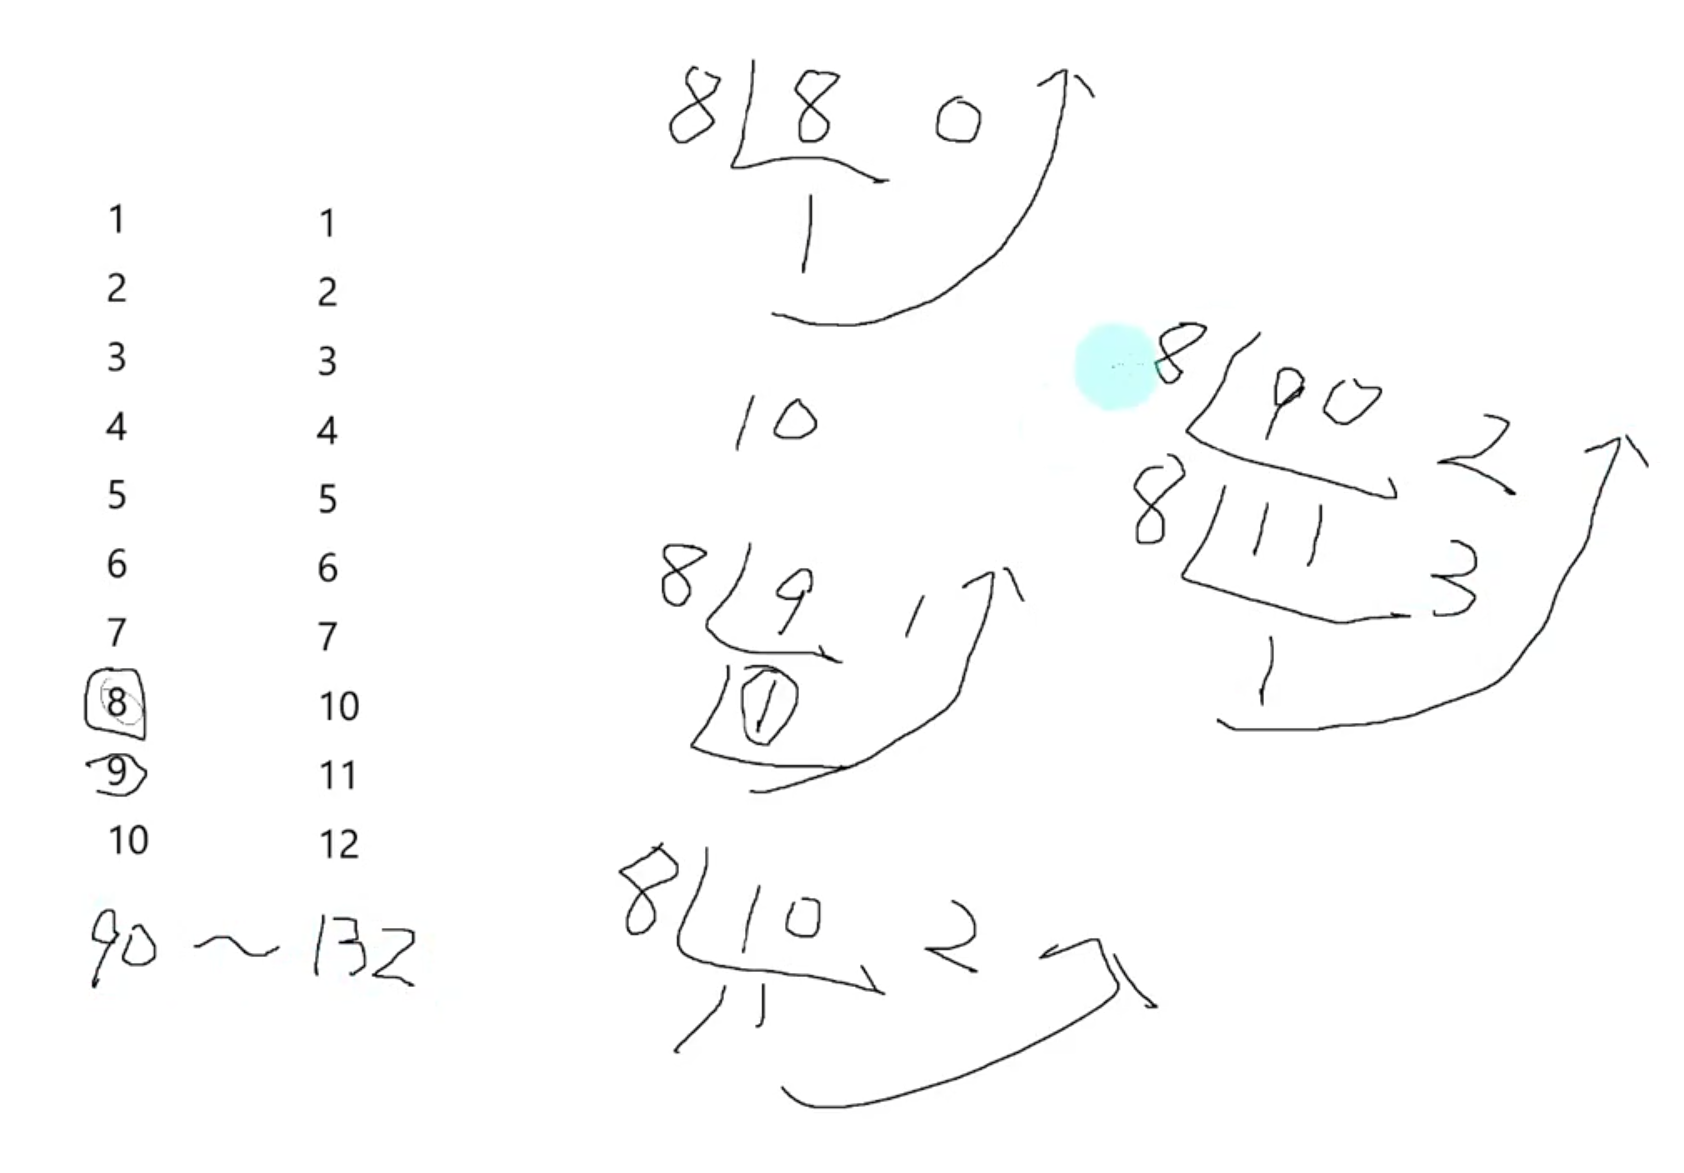 8 8 0
1
1 1
2 2
3 3
4 4
5 5
6 6
7 7
8 10
9 11
10 12
90 ~ 132
10
8 9 1
1
8 10 2
1
8 90 2
8 11 3
1